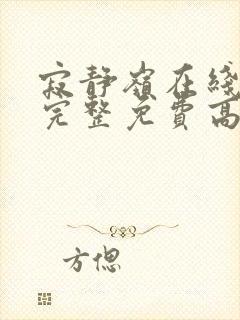 寂静嶺在綫
完整免費高
方偲